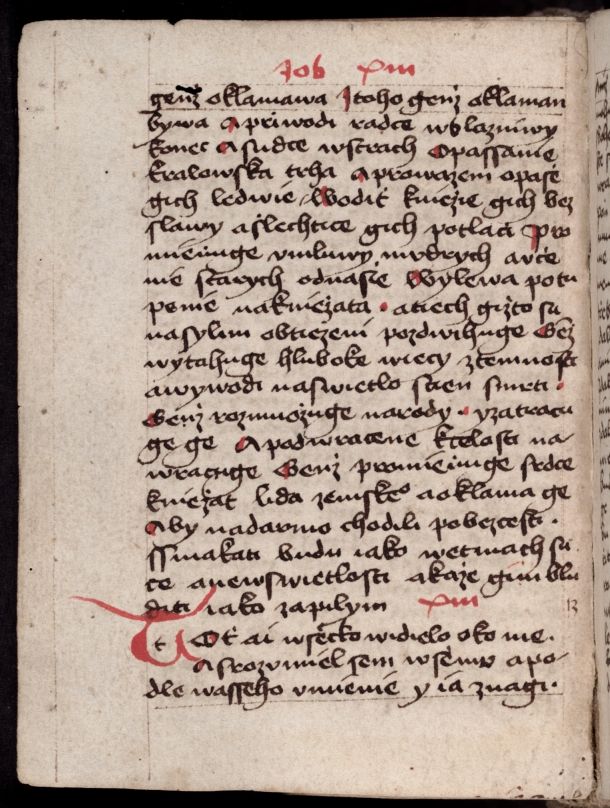 Job XIII
genż oklamawa Itoho genż oklaman
bywa A priwodi radce wblazniwy
konec A sudce wstrach Opassanie
kralowska trha A prowazem opaśe
gich ledwie Wodiť knieżie gich bez
slawy aſlechtice gich potlači Pro
mieniuge mluwy mudrych aučē
nie starych odnasie Wylewa potu
penie nakniežata · atiech gižto su
nasylim obtieżeni pozdwihuge Genż
wytahuge hluboke wiecy ztemnosti
awywodi naswietlo stien smrti ·
Genż rozmnożuge narody · yzatracu
ge ge A podwracene kcelosti na-
wracuge Genż promieniuge srdce
knieżat lida zemske° aoklama ge
Aby nadarmo chodili pobezcesti ·
Ssmakati budu iako wetmach su
ce anewswietlosti akaże gim blu
diti iako zapilym XIII
13
t Toť ai wsecko widielo oko me ·
A srozumiel sem wsemu apo-
dle wasseho umienie y ia znagi ·